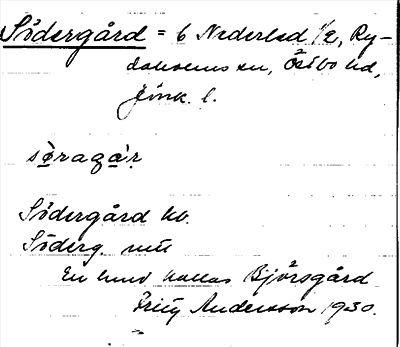 Södergård = 6 Nederled 1/2, Ry-
daholms sn, Östbo hd,
Jönk. l.
söragạ̊r
Södergård kv.
Söderg. mtl
En lund kallas Björsgård
Fritz Andersson 1930.